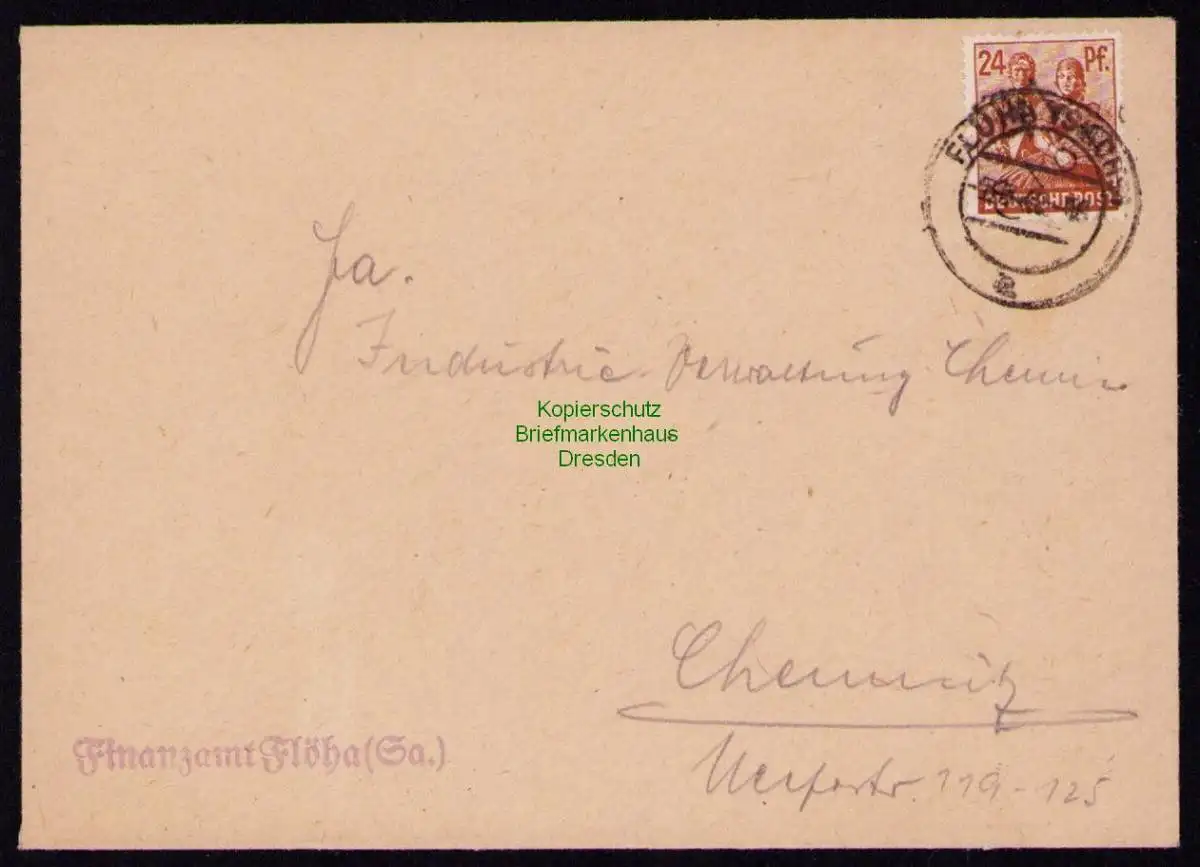 24 Pf.
FLÖHA (SACHS)
DEUTSCHE POST
a
Fa.
Industrie-Verwaltung Chemie
Kopierschutz
Briefmarkenhaus
Dresden
Chemnitz
Finanzamt Flöha (Sa.)
119-125